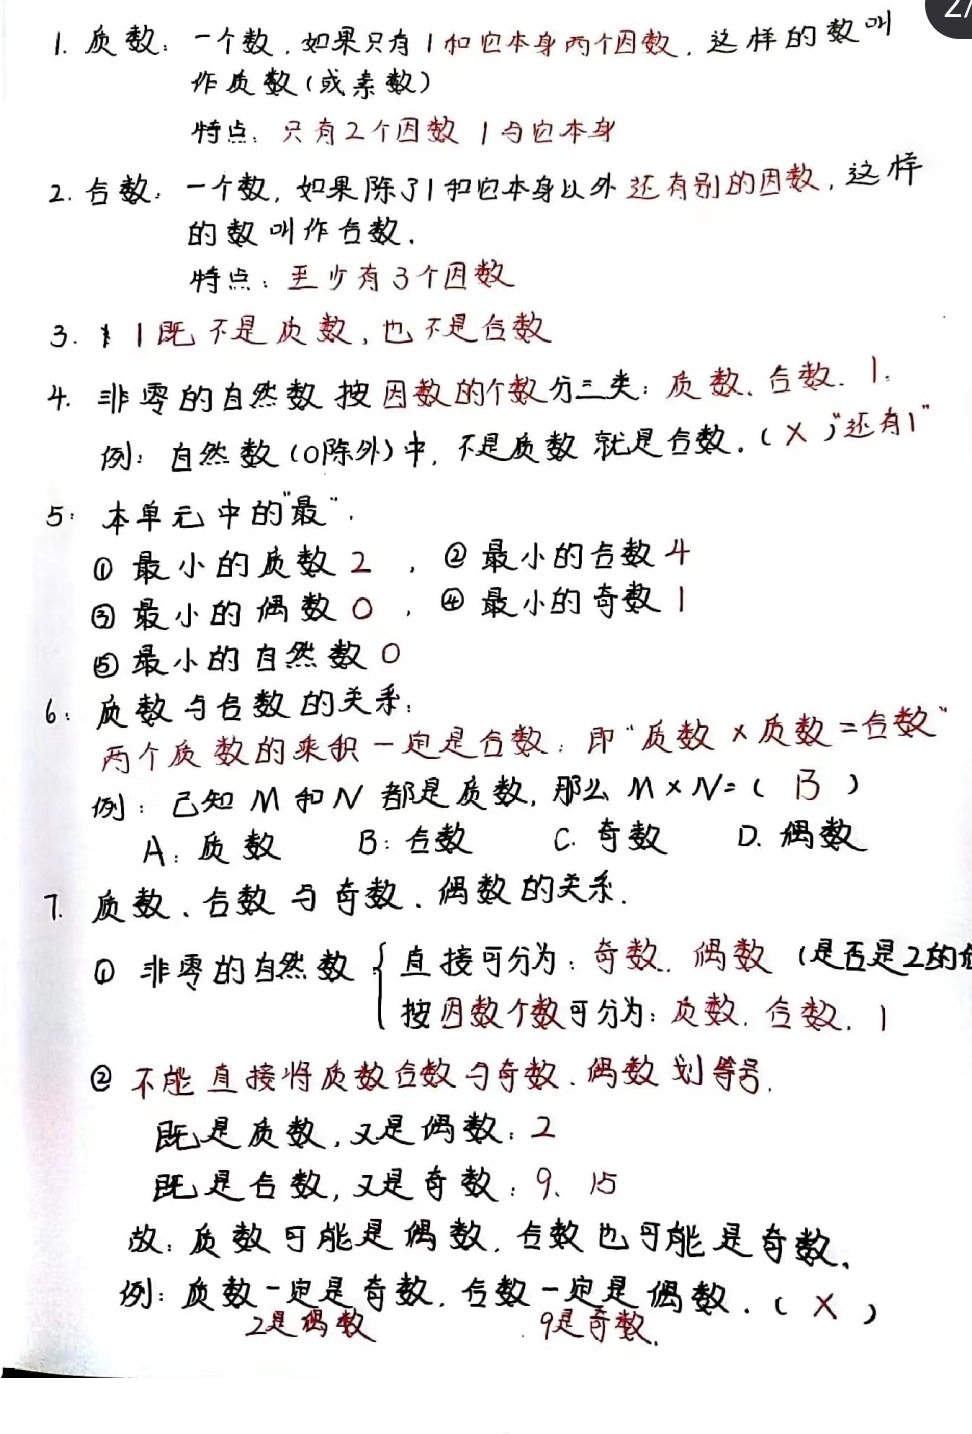 2/
1. 质数：一个数，如果只有1和它本身两个因数，这样的数叫
作质数(或素数)
特点：只有2个因数 1与它本身
2. 合数：一个数，如果除了1和它本身以外还有别的因数，这样
的数叫作合数.
特点：至少有3个因数
3. 1既不是质数，也不是合数
4. 非零的自然数按因数的个数分三类：质数、合数、1.
例：自然数(0除外)中，不是质数就是合数.(×)“还有1”
5. 本单元中的“最”.
① 最小的质数2 ，② 最小的合数4
③ 最小的偶数0 ，④ 最小的奇数1
⑤ 最小的自然数0
6. 质数与合数的关系：
两个质数的乘积一定是合数；即“质数×质数=合数”
例：已知M和N都是质数，那么M×N=( B )
A：质数 B：合数 C. 奇数 D. 偶数
7. 质数、合数与奇数、偶数的关系.
① 非零的自然数 { 直接可分为：奇数、偶数 (是否是2的
按因数个数可分为：质数、合数、1
② 不能直接将质数合数与奇数、偶数划等号.
既是质数，又是偶数：2
既是合数，又是奇数：9、15
故：质数可能是偶数，合数也可能是奇数.
例：质数一定是奇数，合数一定是偶数.( × )
2是偶数 9是奇数.